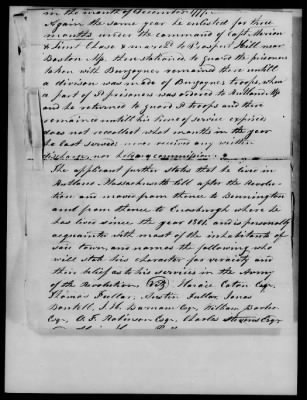 in the month of December 1777.
Again the same year he enlisted for three
months under the command of Capt. Marion
& Lieut Chase & marched to Prospect Hill near
Boston Ms. then stationed to Guard the prisoners
taken with Burgoyne remained there untill
a division was made of Burgoynes troops, when
a part of sd prisoners was ordered to Rutland Ms
and he returned to guard sd troops and there
remained untill his time of service expired
does not recollect what months in the year
he last served never received any written
discharge, nor held any commission.
The applicant further states that he lived in
Rutland Massachusetts till after the Revolu-
tion and moved from thence to Bennington
and from thence to Enosburgh where he
has lived since the year 1801, and is personally
acquainted with most of the inhabitants of
said town, and names the following who
will state his character for veracity and
their belief as to his services in the Army
of the Revolution (Viz) Isaac Eaton Esqr.
Thomas Fuller, Austin Fuller, Jonas
Boutell, J. W. Barnum Esqr. William Barber
Esq, A. F. Robinson Esqr. Charles Stevens Esqr